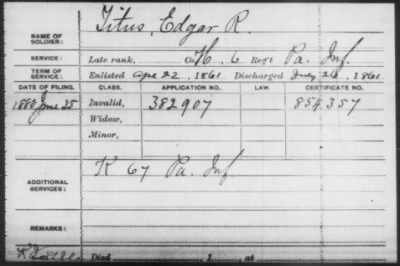 Titus, Edgar R.
NAME OF SOLDIER:
SERVICE: Late rank, Co H, 6 Regt Pa. Inf.
TERM OF SERVICE: Enlisted Apr 22, 1861 Discharged July 26, 1861
DATE OF FILING. CLASS. APPLICATION NO. LAW. CERTIFICATE NO.
1880 June 25 Invalid, 382907 854357
Widow,
Minor,
ADDITIONAL SERVICES: K 67 Pa. Inf
REMARKS:
Died , 1 , at